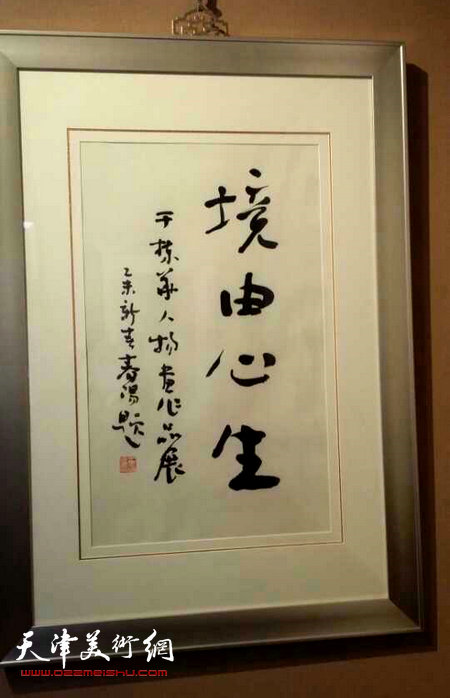 境由心生
于栋华人物画作品展
乙未新春春阳题
天津美術網
www.022meishu.com